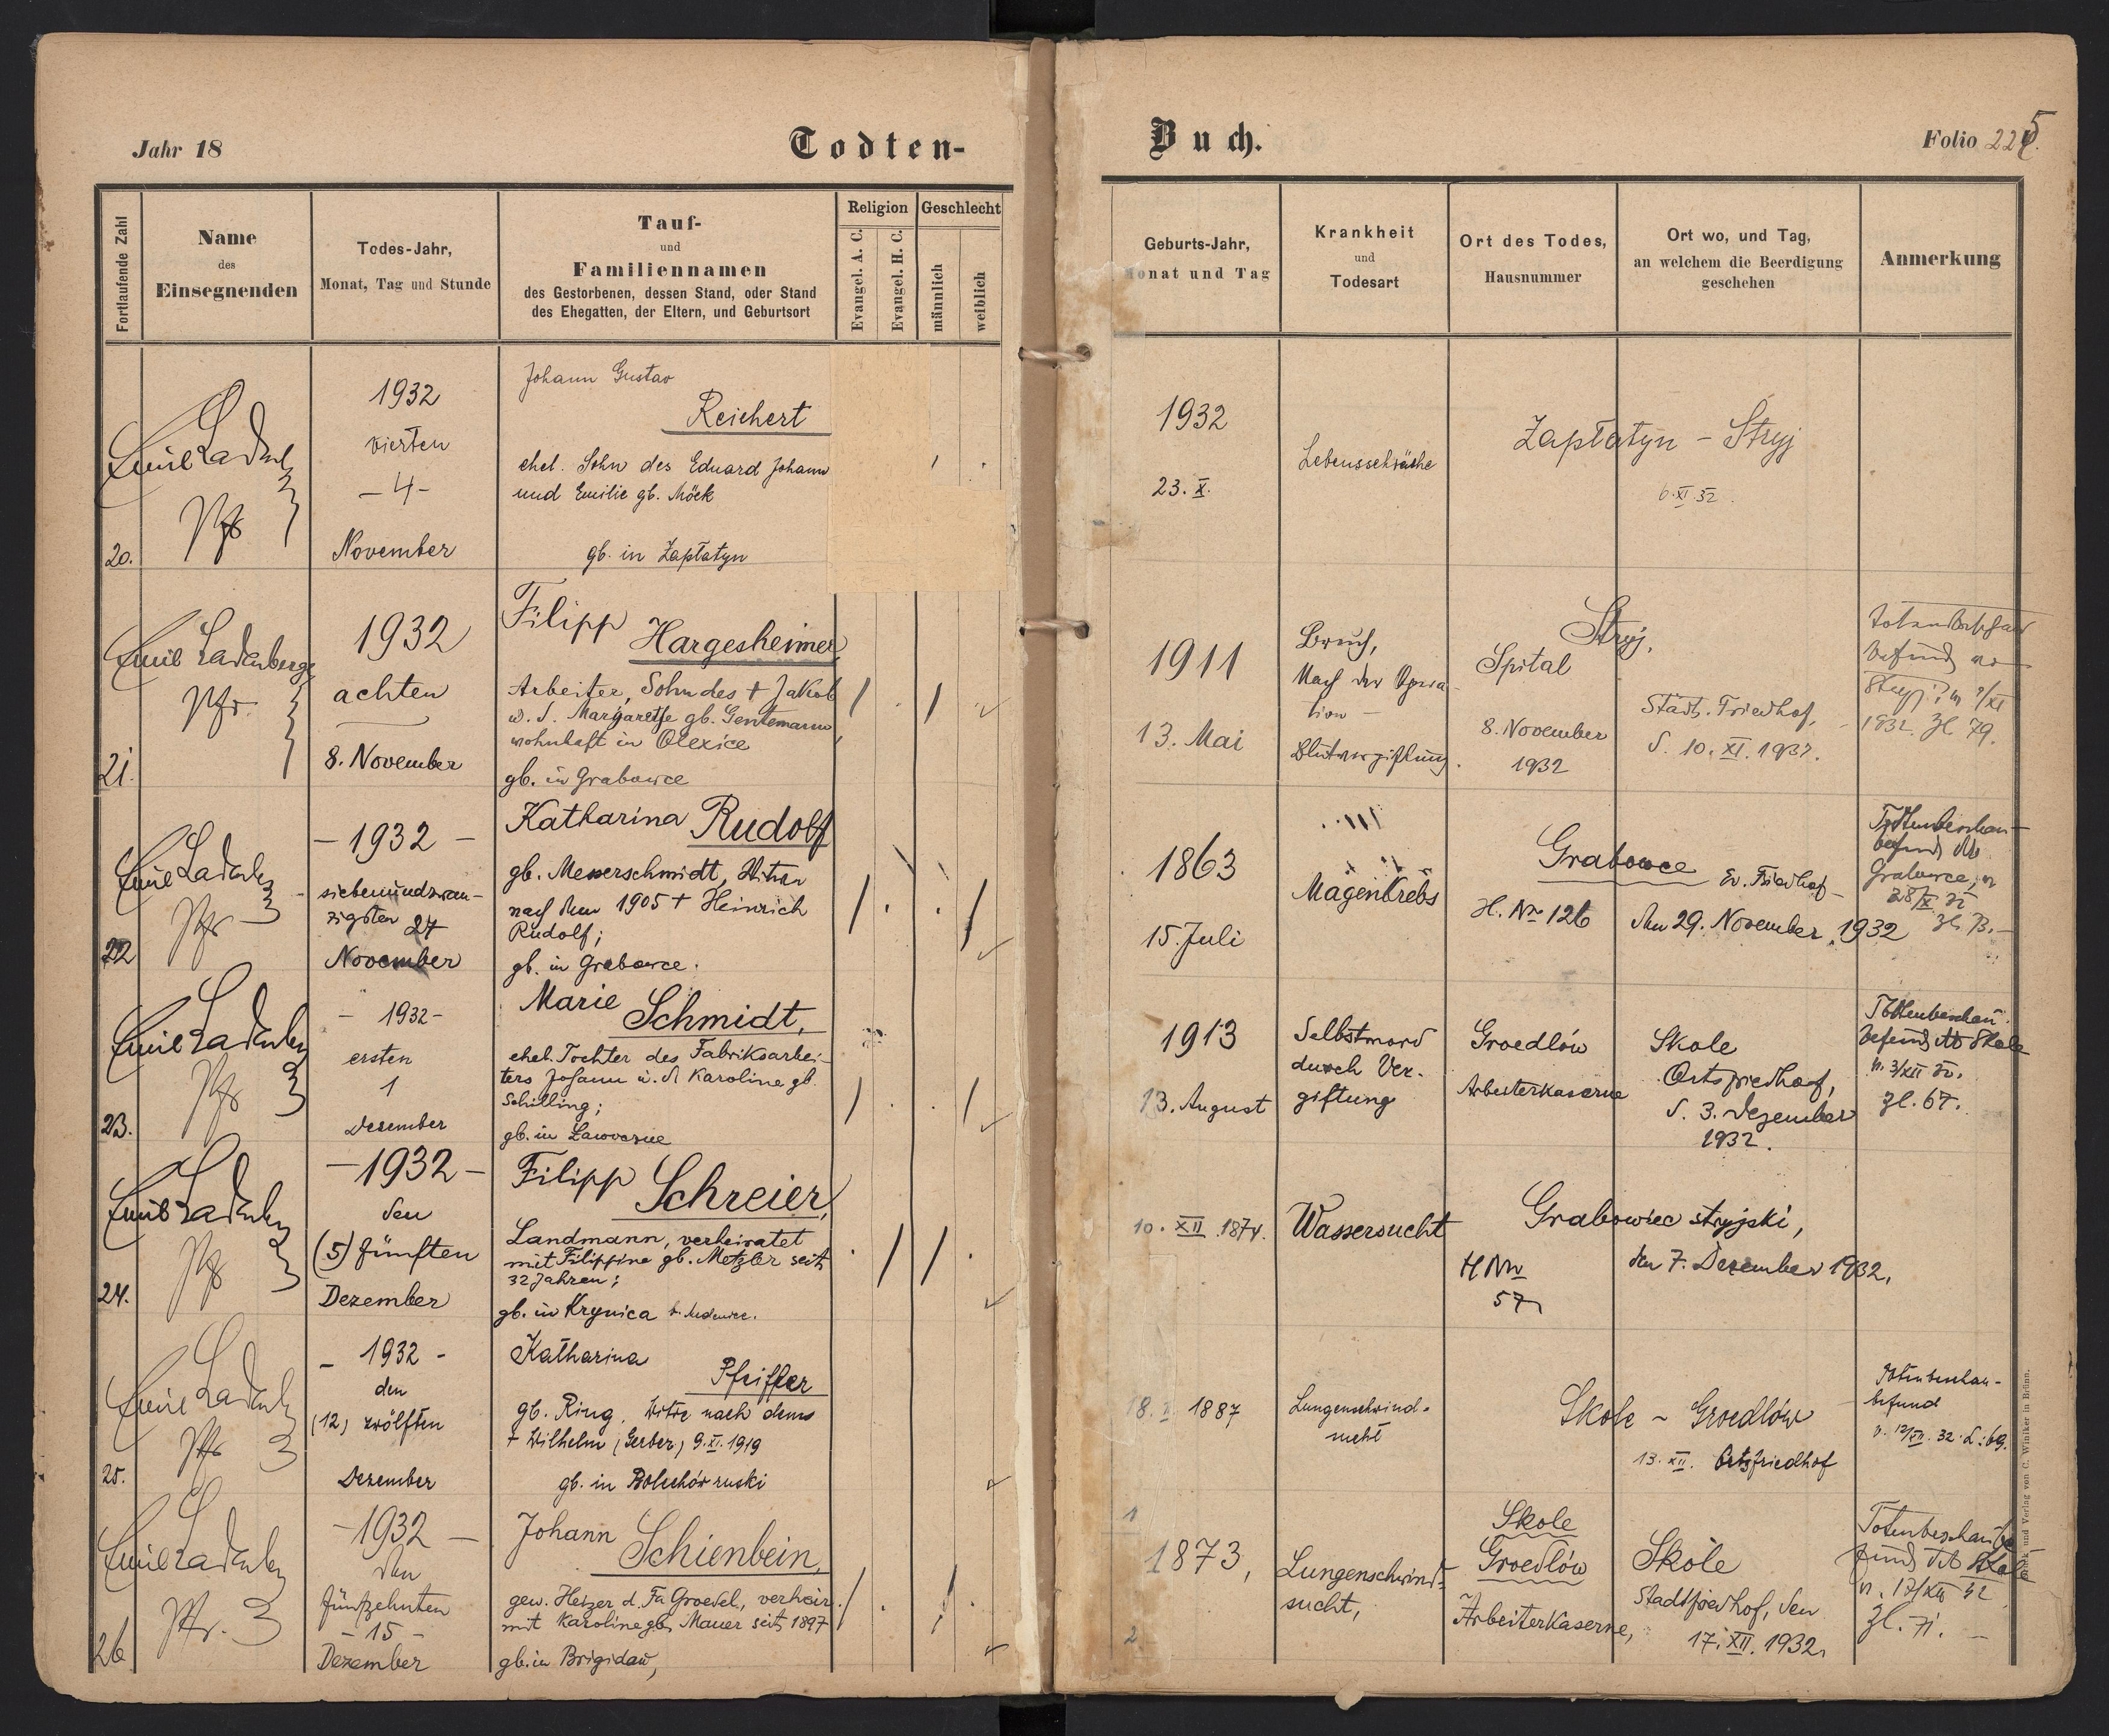 Jahr 18
Todten-
Buch.
Folio 225
Fortlaufende Zahl
Name
des
Einsegnenden
Todes-Jahr,
Monat, Tag und Stunde
Tauf-
und
Familiennamen
des Gestorbenen, dessen Stand, oder Stand
des Ehegatten, der Eltern, und Geburtsort
Religion
Evangel. A. C.
Evangel. H. C.
Geschlecht
männlich
weiblich
Geburts-Jahr,
Monat und Tag
Krankheit
und
Todesart
Ort des Todes,
Hausnummer
Ort wo, und Tag,
an welchem die Beerdigung
geschehen
Anmerkung
20.
Emil Ladenb
Pfr
1932
vierten
- 4 -
November
Johann Gustav
Reichert
ehel. Sohn des Eduard Johann
und Emilie gb. Möck
gb. in Zapłatyn
1932
23. X.
Lebensschwäche
Zapłatyn - Stryj
6. XI. 32.
21.
Emil Ladenberger
Pfr.
1932
achten
8. November
Filipp
Hargesheimer,
Arbeiter, Sohn des + Jakob
u. d. Margarethe gb. Gentemann,
wohnhaft in Olexice
gb. in Grabowce
1911
13. Mai
Bruch,
Nach der Opera-
tion -
Blutvergiftung.
Stryj,
Spital
8. November
1932
Städt. Friedhof,
d. 10. XI. 1932.
Totenbeschau
befund
Stryj
1932. Zl. 79.
22
Emil Ladenb
Pfr
- 1932 -
siebenundzwan-
zigsten 27
November
Katharina Rudolf
gb. Messerschmidt, Witwe
nach dem 1905 + Heinrich
Rudolf;
gb. in Grabowce.
1863
15. Juli
Magenkrebs
Grabowce
H. Nr 126
Ev. Friedhof
den 29. November 1932
Totenbeschau-
befund dto
Grabowce, v.
28/XI 32
Zl. 13.-
23.
Emil Ladenb
Pfr
- 1932 -
ersten
1
Dezember
Marie
Schmidt,
ehel. Tochter des Fabriksarbei-
ters Johann u. d. Karoline gb.
Schilling;
gb. in Ławoczne
1913
13. August
Selbstmord
durch Ver-
giftung
Groedlów
Arbeiterkaserne
Skole
Ortsfriedhof,
d. 3. Dezember
1932.
Totenbeschau-
befund dto Skole
v. 3/XII 32.
Zl. 67.
24.
Emil Ladenb
Pfr
- 1932 -
den
(5) fünften
Dezember
Filipp
Schreier,
Landmann, verheiratet
mit Filippine gb. Metzler seit
32 Jahren;
gb. in Krynica b. Medenice.
10. XII. 1874.
Wassersucht
Grabowiec stryjski,
H Nr
57
den 7. Dezember 1932.
25.
Emil Ladenb
Pfr
- 1932 -
den
(12) zwölften
Dezember
Katharina
Pfeiffer
gb. Ring, Witwe nach dem
+ Wilhelm (Gerber) 9. XI. 1919
gb. in Bolechów ruski
1887
Lungenschwind-
sucht
Skole - Groedlów
13. XII. Ortsfriedhof
Totenbeschau-
befund
v. 12/XII. 32. L: 69.
26
Emil Ladenb
Pfr.
- 1932 -
den
fünfzehnten
- 15 -
Dezember
Johann
Schienbein,
gew. Heizer d. Fa Groedel, verheir.
mit Karoline gb. Mauer seit 1897
gb. in Brigidau,
1
1873,
2
Lungenschwind-
sucht,
Skole
Groedlów
Arbeiterkaserne,
Skole
Stadtfriedhof, den
17. XII. 1932.
Totenbeschaube
fund dto Skole
v. 17/XII 32
Zl. 71. -
Druck und Verlag von C. Winiker in Brünn.